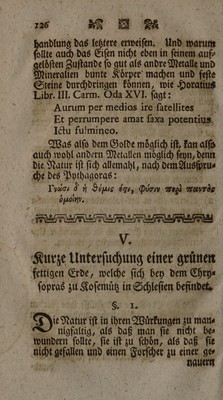 126
handlung das letztere erweisen. Und warum
sollte auch das Eisen nicht eben in seinem auf-
gelösten Zustande so gut als andre Metalle und
Mineralien bunte Körper machen und feste
Steine durchdringen können, wie Horatius
Libr. III. Carm. Oda XVI. sagt:
Aurum per medios ire satellites
Et perrumpere amat saxa potentius
Ictu fulmineo.
Was also dem Golde möglich ist, kan also
auch wohl andern Metallen möglich seyn, denn
die Natur ist sich allemahl, nach dem Ausspru-
che des Pythagoras:
Γνώσῃ δ' ἣ θέμις ἐςι, φύσιν περὶ παντὸς
ὁμοίην.
V.
Kurze Untersuchung einer grünen
fettigen Erde, welche sich bey dem Chry-
sopras zu Kosemütz in Schlesien befindet.
§. 1.
Die Natur ist in ihren Würkungen zu man-
nigfaltig, als daß man sie nicht be-
wundern sollte, sie ist zu schön, als daß sie
nicht gefallen und einen Forscher zu einer ge-
nauern